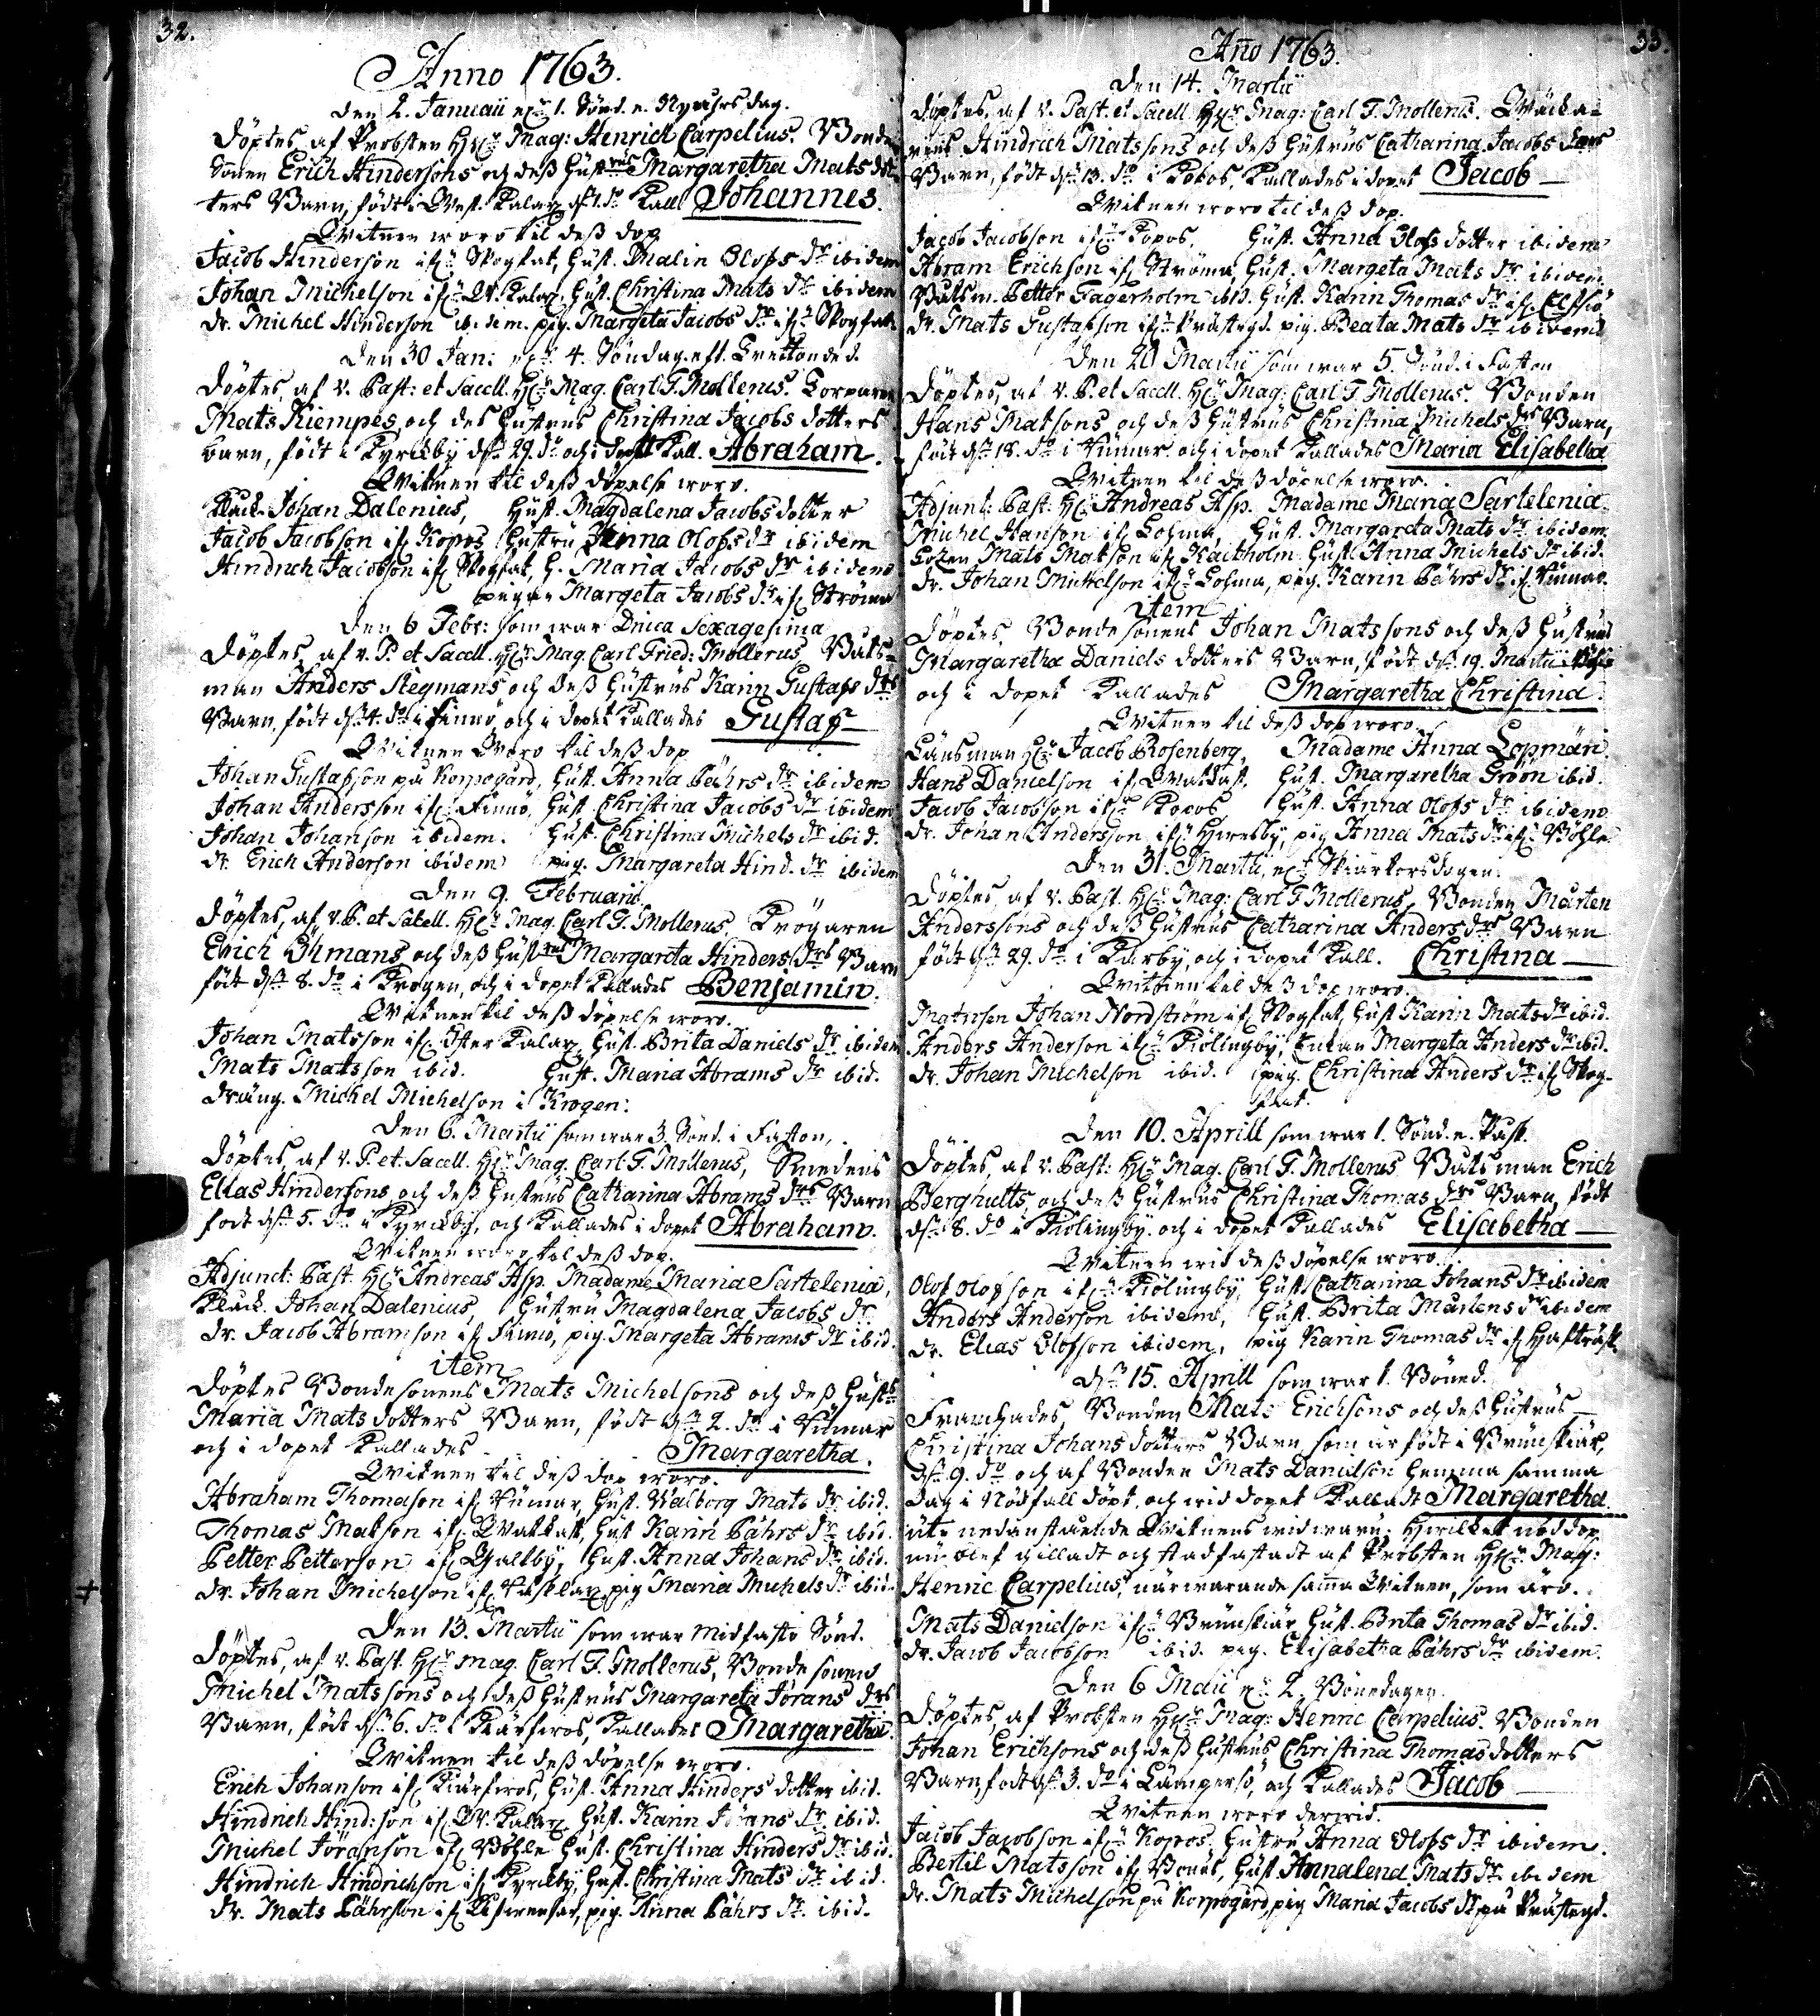 32.
Anno 1763.
Den 2. Januarii 1. Sönd. e. Nyåhrsdag.
Döptes, af Probsten H:r Mag: Henrick Carpelius. Bonde
Sonen Erich Hindersons och dess Hustrus Margaretha Mats dot-
ters Barn, födt i West. Kalax d: 1. d:o Kall. Johannes.
Witnen woro til dess dop
Jacob Hinderson if. Skogfat, Hust. Malin Olofs d:r ibidem
Johan Michelson if. W. Kalax, Hust. Christina Mats d:r ibidem
Dr. Michel Hinderson ibidem. pig. Margeta Jacobs d:r if. Skogfat
Den 30 Jan: 4. Söndag. eft. Trettonded.
Döptes, af v. Past: et Sacell. H:r Mag. Carl F. Mollerus. Torparen
Mats Kiempes, och des Hustrus Christina Jacobs dotters
barn, födt i Kyrckby d: 29. d:o och i dopet Kall. Abraham.
Witnen til dess döpelse woro.
Klock. Johan Dalenius, Hust. Magdalena Jacobsdotter
Jacob Jacobson if. Kopos Hustru Anna Olofs d:r ibidem
Hindrich Jacobson if. Skogfat, H. Maria Jacobs d:r ibidem
pigan Margeta Jacobs d:r if. Ströma
Den 6 Febr: som war Dnica Sexagesima
Döptes af v. P. et Sacell. H:r Mag. Carl Fried: Mollerus Båts-
man Anders Stegmans och dess Hustrus Karin Gustafs d:rs
Barn, födt d: 4. d:o i Finnö, och i dopet Kallades Gustaf
Witnen Woro til dess dop
Johan Gustafson på Korpogård, Hust. Anna Påhrs d:r ibidem
Johan Andersson if. Finnö, Hust. Christina Jacobs d:r ibidem
Johan Johanson ibidem. Hust. Christina Michels d:r ibid.
dr. Erich Anderson ibidem pig. Margareta Hind. d:r ibidem
Den 9. Februarii
Döptes, af v. P. et Sacell. H:r Mag. Carl F. Mollerus, Krögaren
Erich Öhmans och dess Hustrus Margareta Hinders d:rs Barn
födt d: 8. d:o i Krogen, och i dopet Kallades Benjamin.
Witnen til dess döpelse woro.
Johan Matsson if. Öster Kalax Hust. Brita Daniels d:r ibidem
Mats Matsson ibid. Hust. Maria Abrams d:r ibid.
dräng. Michel Michelson i Krogen:
Den 6. Martii som war 3. Sönd. i Faston,
Döptes af v. P. et Sacell. H:r Mag. Carl F. Mollerus, Smedens
Elias Hindersons, och dess Hustrus Catharina Abrams d:rs Barn
fodt d: 5. d:o i Kyrckby, och Kallades i dopet Abraham.
Witnen woro til dess dop.
Adjunct: Past. H:r Andreas Asp. Madame Maria Sartelenia,
Klock. Johan Dalenius, Hustru Magdalena Jacobs d:r
dr. Jacob Abramson if. Finnö, pig. Margeta Abrams d:r ibid.
item
Döptes Bondesonens Mats Michelsons och dess Hust:s
Maria Mats dotters Barn, födt d: 2. d:o i Wimar
och i dopet Kallades Margaretha.
Witnen til dess dop woro.
Abraham Thomason if. Wimar, Hust. Walborg Mats d:r ibid.
Thomas Matson if. Wattkast, Hust Karin Påhrs d:r ibid.
Petter Petterson if. Galtby, Hust. Anna Johans d:r ibid.
dr. Johan Michelson if. pig Maria Michels d:r ibid.
Den 13. Martii som war Midfasto Sönd.
Döptes, af v. Past. H:r mag. Carl F. Mollerus, Bonde sonens
Michel Matssons och dess Hustrus Margareta Jörans d:rs
Barn, födt d: 6. d:o i Kiärferos, Kallades Margaretha.
Witnen til dess döpelse woro.
Erich Johanson if. Kiärferos, Hust. Anna Hinders dotter ibid.
Hindrich Hind:son if. W. Kalax, Hust. Karin Jörans d:r ibid.
Michel Jöranson if. Böhle Hust. Christina Hinders d:r ibid.
Hindrich Hindrichson if. Kyrckby, Hust. Christina Mats d:r ibid.
dr. Mats Påhrson if. pig. Anna Påhrs d:r ibid.
33.
Año 1763.
Den 14. Martii
Döptes, af v. Past. et Sacell. H:r Mag: Carl F. Mollerus.
Hindrich Matssons och dess Hustrus Catharina Jacobs d:rs
Barn, födt d: 13. d:o i Kopos, Kallades i dopet Jacob
Witnen woro til dess dop.
Jacob Jacobson if. Kopos. Hust. Anna Olofs dotter ibidem
Abram Erichson if. Ströma, Hust. Margeta Mats d:r ibidem.
Båtsm. Petter Fagerholm ibid. Hust. Karin Thomas d:r if. Elfsiö
dr. Mats Gustafson if. Prästegd. pig. Beata Mats d:r ibidem
Den 20 Martii som war 5. Sönd. i Faston
Döptes, af v. P. et Sacell. H:r Mag: Carl F. Mollerus. Bonden
Hans Matsons och dess Hustrus Christina Michels d:rs Barn,
födt d: 18. d:o i Wimar och i dopet Kallades Maria Elisabetha
Witnen til dess döpelse woro.
Adjunt: Past: H:r Andreas Asp. Madame Maria Sartelenia.
Michel Hanson if. Lohma, Hust. Margareta Mats d:r ibidem.
Mats Matson if. Kaitholm Hust Anna Michels d:r ibid.
dr. Johan Mickelson if. Lohma, pig. Karin Påhrs d:r if. Wimar.
item
Döptes, Bonde sonens Johan Matssons och dess Hustrus
Margaretha Daniels dotters Barn, födt d: 19. Martii i
och i dopet Kallades Margaretha Christina.
Witnen til dess dop woro.
Länsman H:r Jacob Rosenberg, Madame Anna Lopman.
Hans Danielson if. Wattkast. Hust. Margaretha Gröön ibid.
Jacob Jacobson if. Kopos, Hust. Anna Olofs d:r ibidem
dr. Johan Andersson if. pig Anna Mats d:r if. Böhle
Den 31. Martii, Skiärtorsdagen.
Döptes, af v. Past. H:r Mag: Carl F Mollerus, Bonden Mårten
Anderssons och dess Hustrus Catharina Anders d:rs Barn
födt d: 29. d:o i Karby, och i dopet Kall. Christina
Witnen til dess dop woro.
Johan Nordström if. Skogfat, Hust Karin Mats d:r ibid.
Anders Anderson if. Kiölingby, Margeta Anders d:r ibid.
dr. Johan Michelson ibid. pig. Christina Anders d:r if. Skog-
fat.
Den 10. Aprill som war 1. Sönd. e. Påsk.
Döptes, af v. Past: H:r Mag. Carl F. Mollerus Båtsman Erich
Berghults, och dess Hustrus Christina Thomas d:rs Barn, födt
d: 8. d:o i Kiölingby. och i dopet Kallades Elisabetha
Witnen wid dess döpelse woro.
Olof Olofson if. Kiölingby, Hust. Catharina Johans d:r ibidem
Anders Anderson ibidem, Hust. Brita Mårtens d:r ibidem
dr. Elias Olofson ibidem, pig Karin Thomas d:r if.
d: 15. Aprill som war 1. Böned.
Framhades, Bonden Mats Erichsons och dess Hustrus
Christina Johans dotters Barn, som är födt i Brunskiär,
d: 9. d:o och af Bonden Mats Danielson hemma samma
dag i Nödfall döpt, och wid dopet Kalladt Margaretha.
uti nedanstående Witnens närwaru. Hwilket nöddop
nu blef gilladt och stadfästadt af Probsten H:r Mag:
Henric Carpelius, närwarande samma Witnen, som äro.
Mats Danielson if. Brunskiär, Hust. Brita Thomas d:r ibid.
dr. Jacob Jacobson ibid. pig. Elisabetha Påhrs d:r ibidem.
Den 6 Maii 2. Bönedagen.
Döptes, af Probsten H:r Mag: Henric Carpelius. Bonden
Johan Erichsons och dess Hustrus Christina Thomas dotters
Barn, fodt d: 3. d:o i Lämpersö, och Kallades Jacob
Witnen woro derwid.
Jacob Jacobson if. Kopos. Hustru Anna Olofs d:r ibidem.
Bertil Matsson if. Hust. Annalena Mats d:r ibidem
dr. Mats Michelson på Korpogård, pig Maria Jacobs d:r på Prästegd.